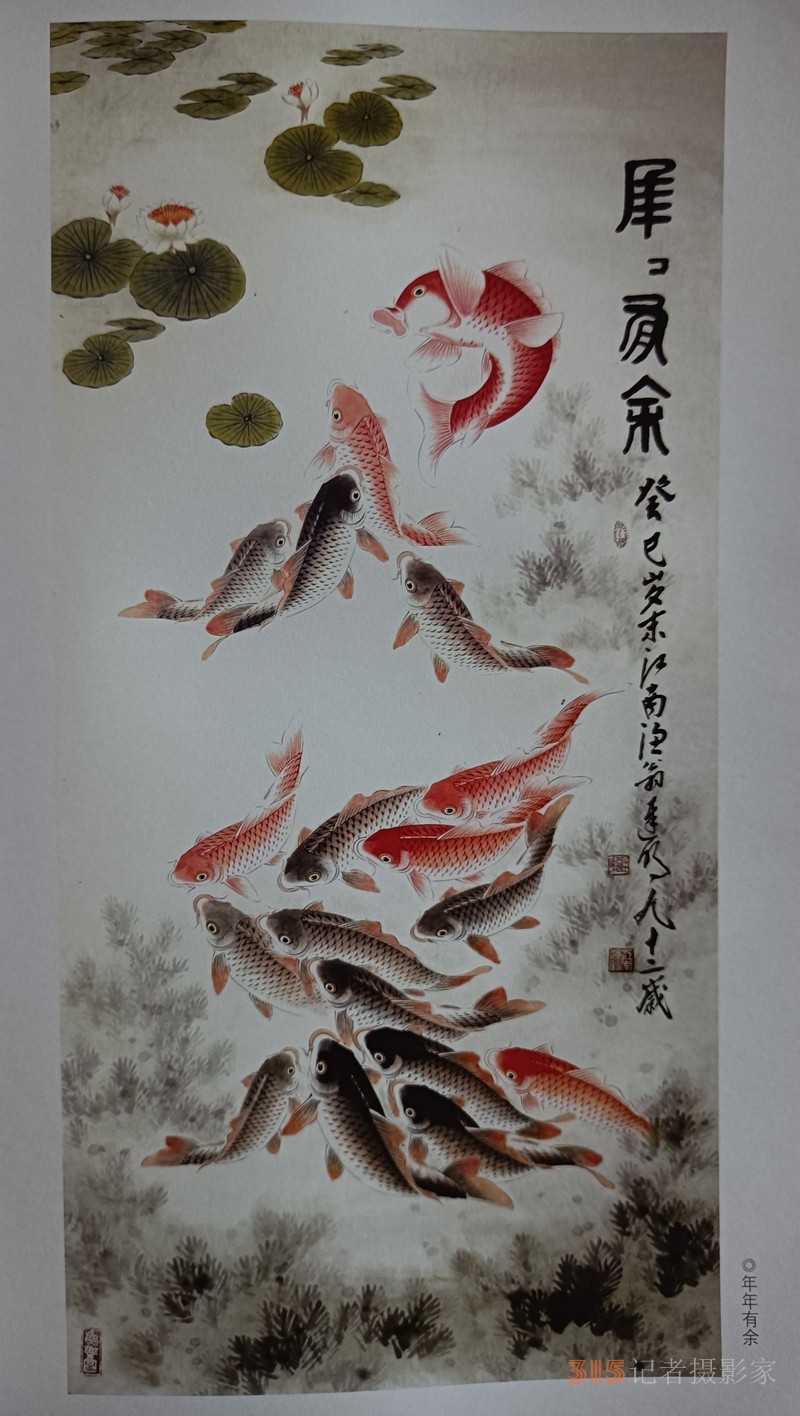 年〻有余
癸巳岁末江南渔翁逢友写九十二岁
◎年年有余
315记者摄影家